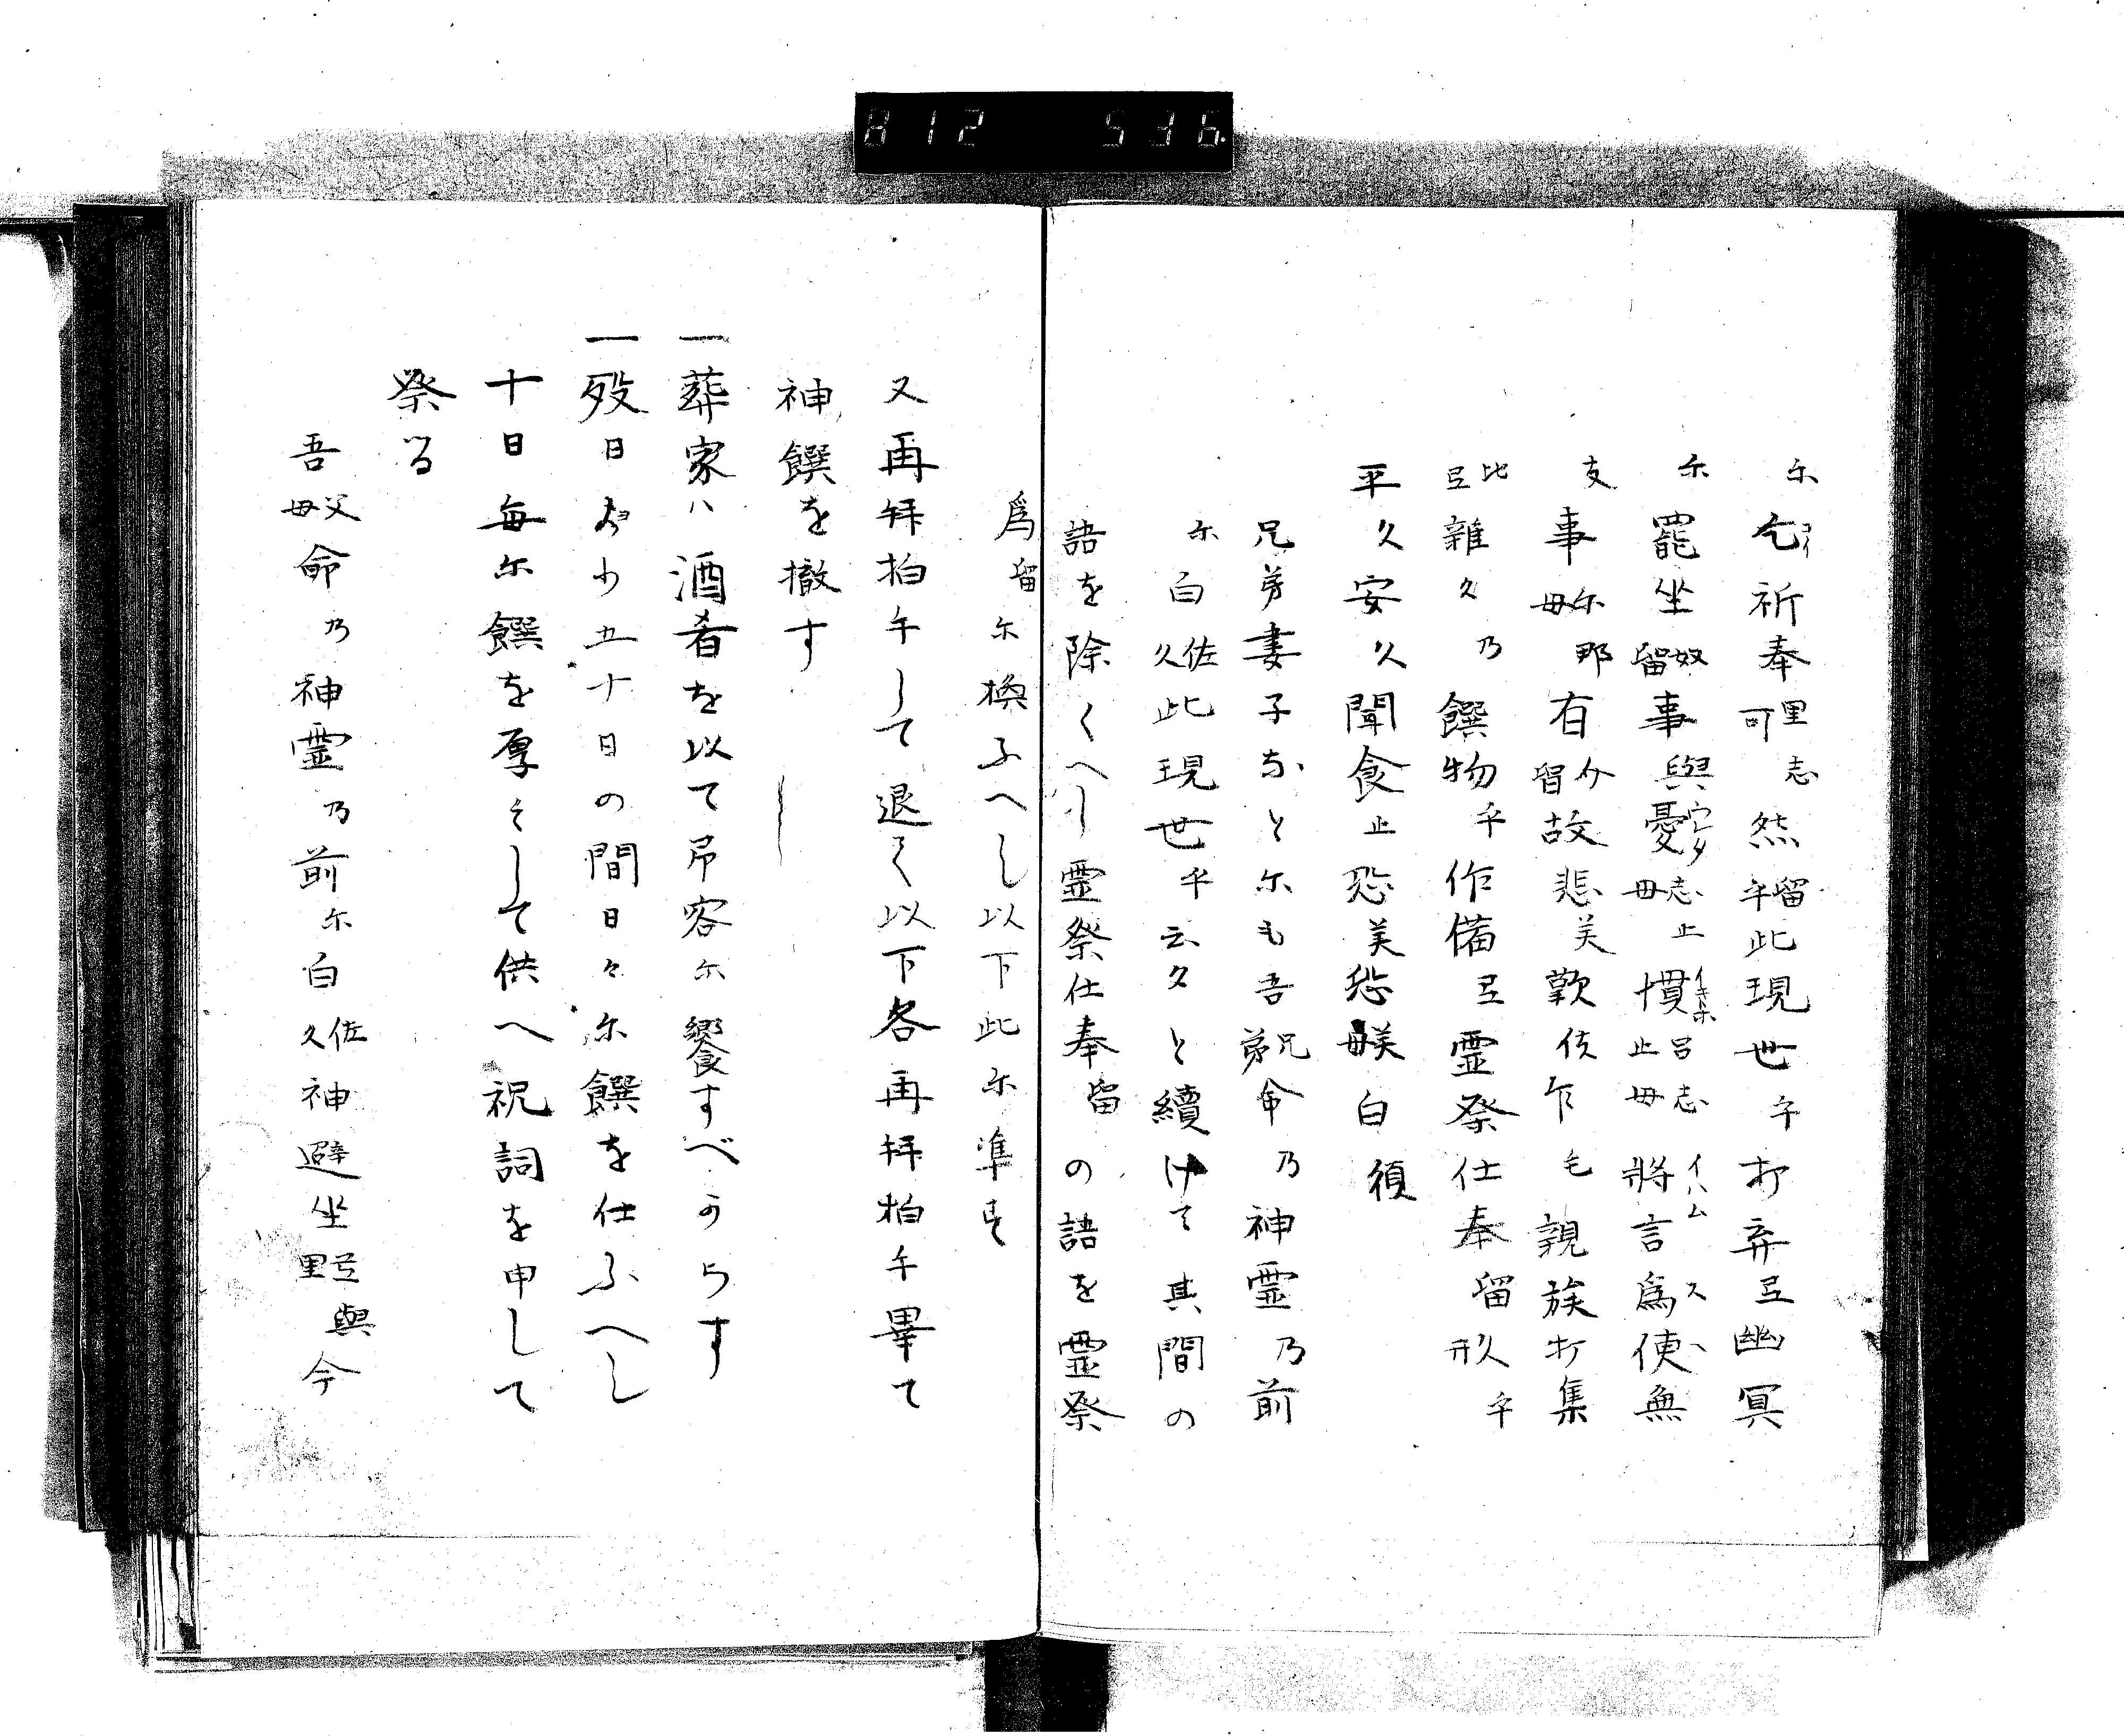 812 536
尓乞コヒ祈奉里志可然留乎此現世乎打弃弖幽冥
尓罷坐奴留事與憂ウタ志止母慣イキトホ呂志止母將言イハム爲ス使ヘ無
支事尓母那有介留故悲美歎伎乍毛親族打集
比弖雜久乃饌物乎作備弖霊祭仕奉留形久乎
平久安久聞食止恐美恐美母白須
兄弟妻子なと尓も吾兄弟命乃神霊乃前
尓白佐久此現世乎云々と續けて其間の
語を除くへし霊祭仕奉留の語を霊祭
爲留尓換ふへし以下此尓準す
又再拝拍手して退く以下各再拝拍手畢て
神饌を撤す
一葬家ハ酒肴を以て吊客尓饗すべからす
一歿日より五十日の間日々尓饌を仕ふへし
十日毎尓饌を厚くして供へ祝詞を申して
祭る
吾父母命乃神霊乃前尓白佐久神避坐弖里與今